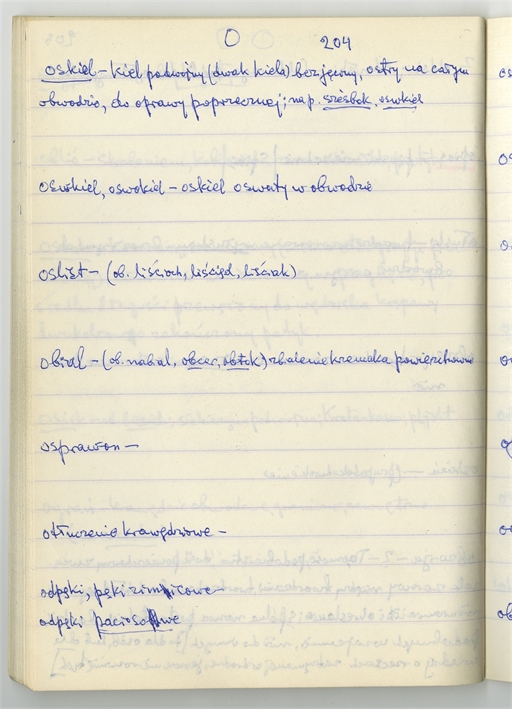 O 204
oskiel – kiel podwójny (dwak kiela) bezjęcny, ostry na całym
obwodzie, do oprawy poprzecznej; np. szesbok, oswkiel
oswkiel, oswokiel – oskiel oswaty w obwodzie
oslist – (ob. liścioch, liściąd, liściak)
obial – (ob. nabial, obcer, obtok) zbalenie kremaka powierzchown
osprawon –
otłuczenie krawędziowe –
odpęki, pęki zimnicowe –
odpęki paciosowe